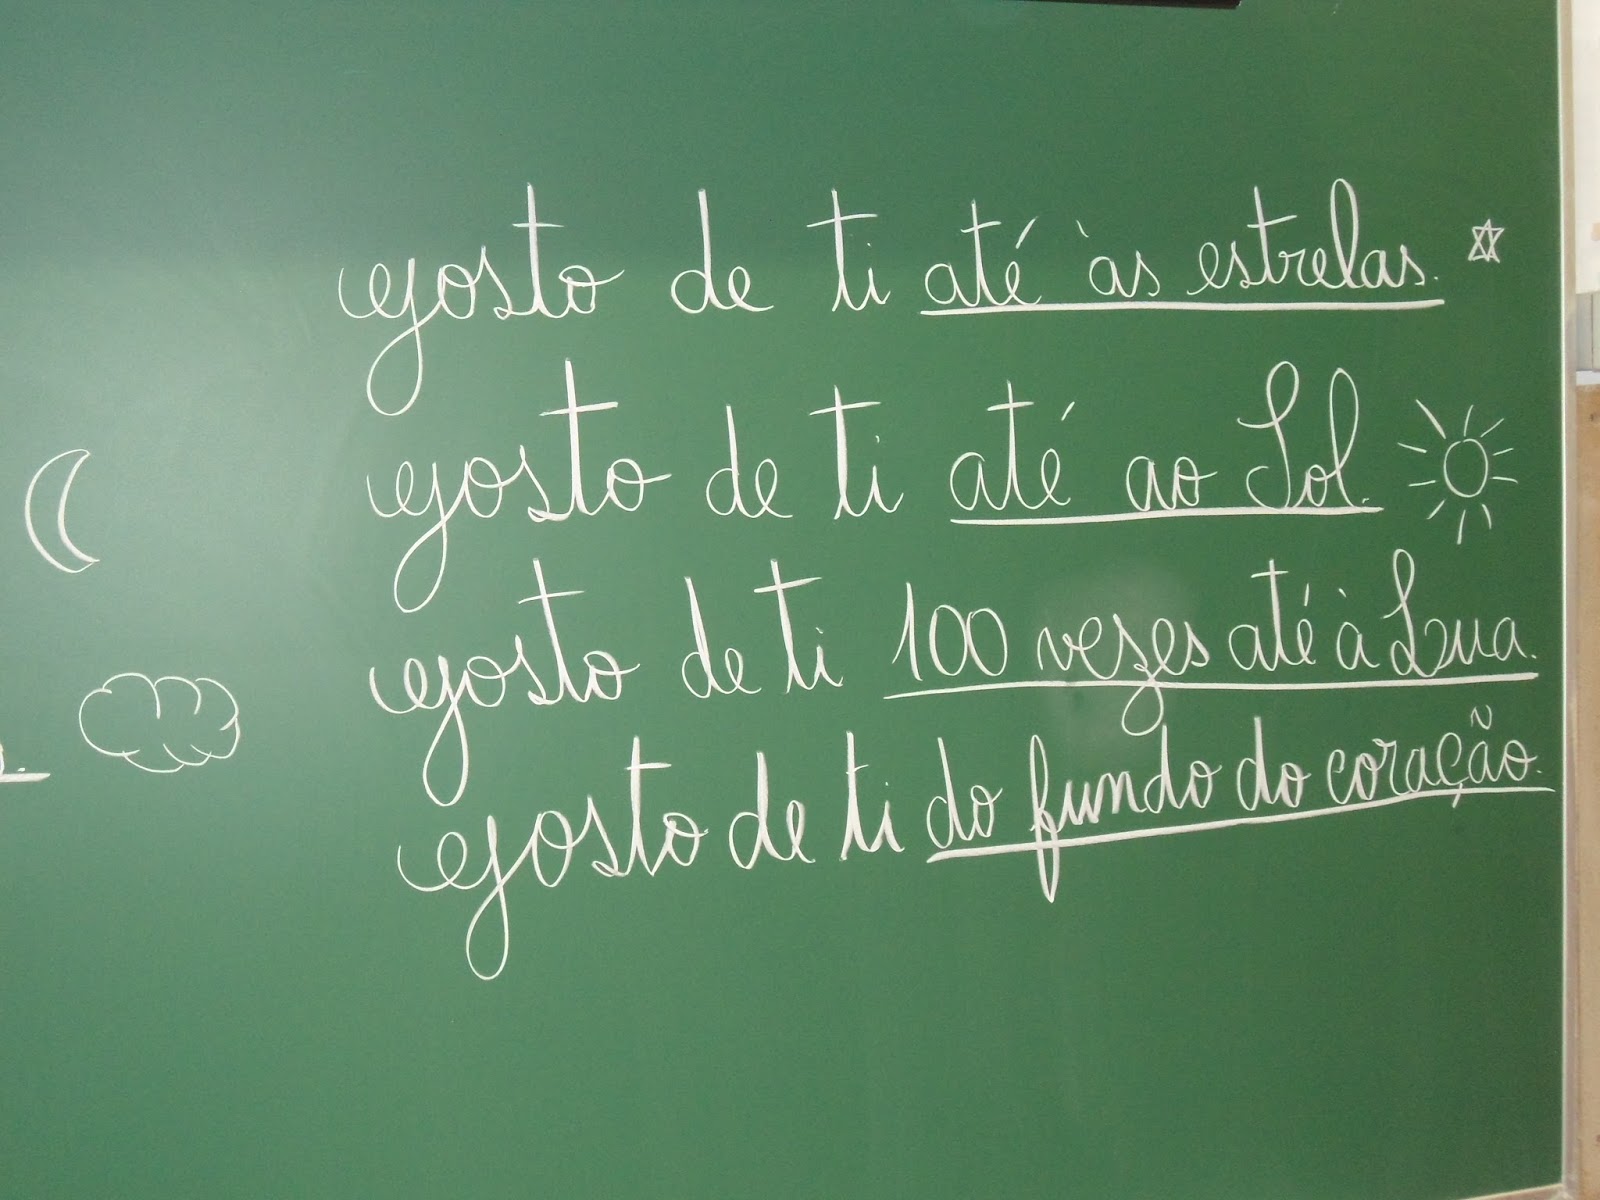 gosto de ti até às estrelas.
gosto de ti até ao Sol.
gosto de ti 100 vezes até à Lua.
gosto de ti do fundo do coração.